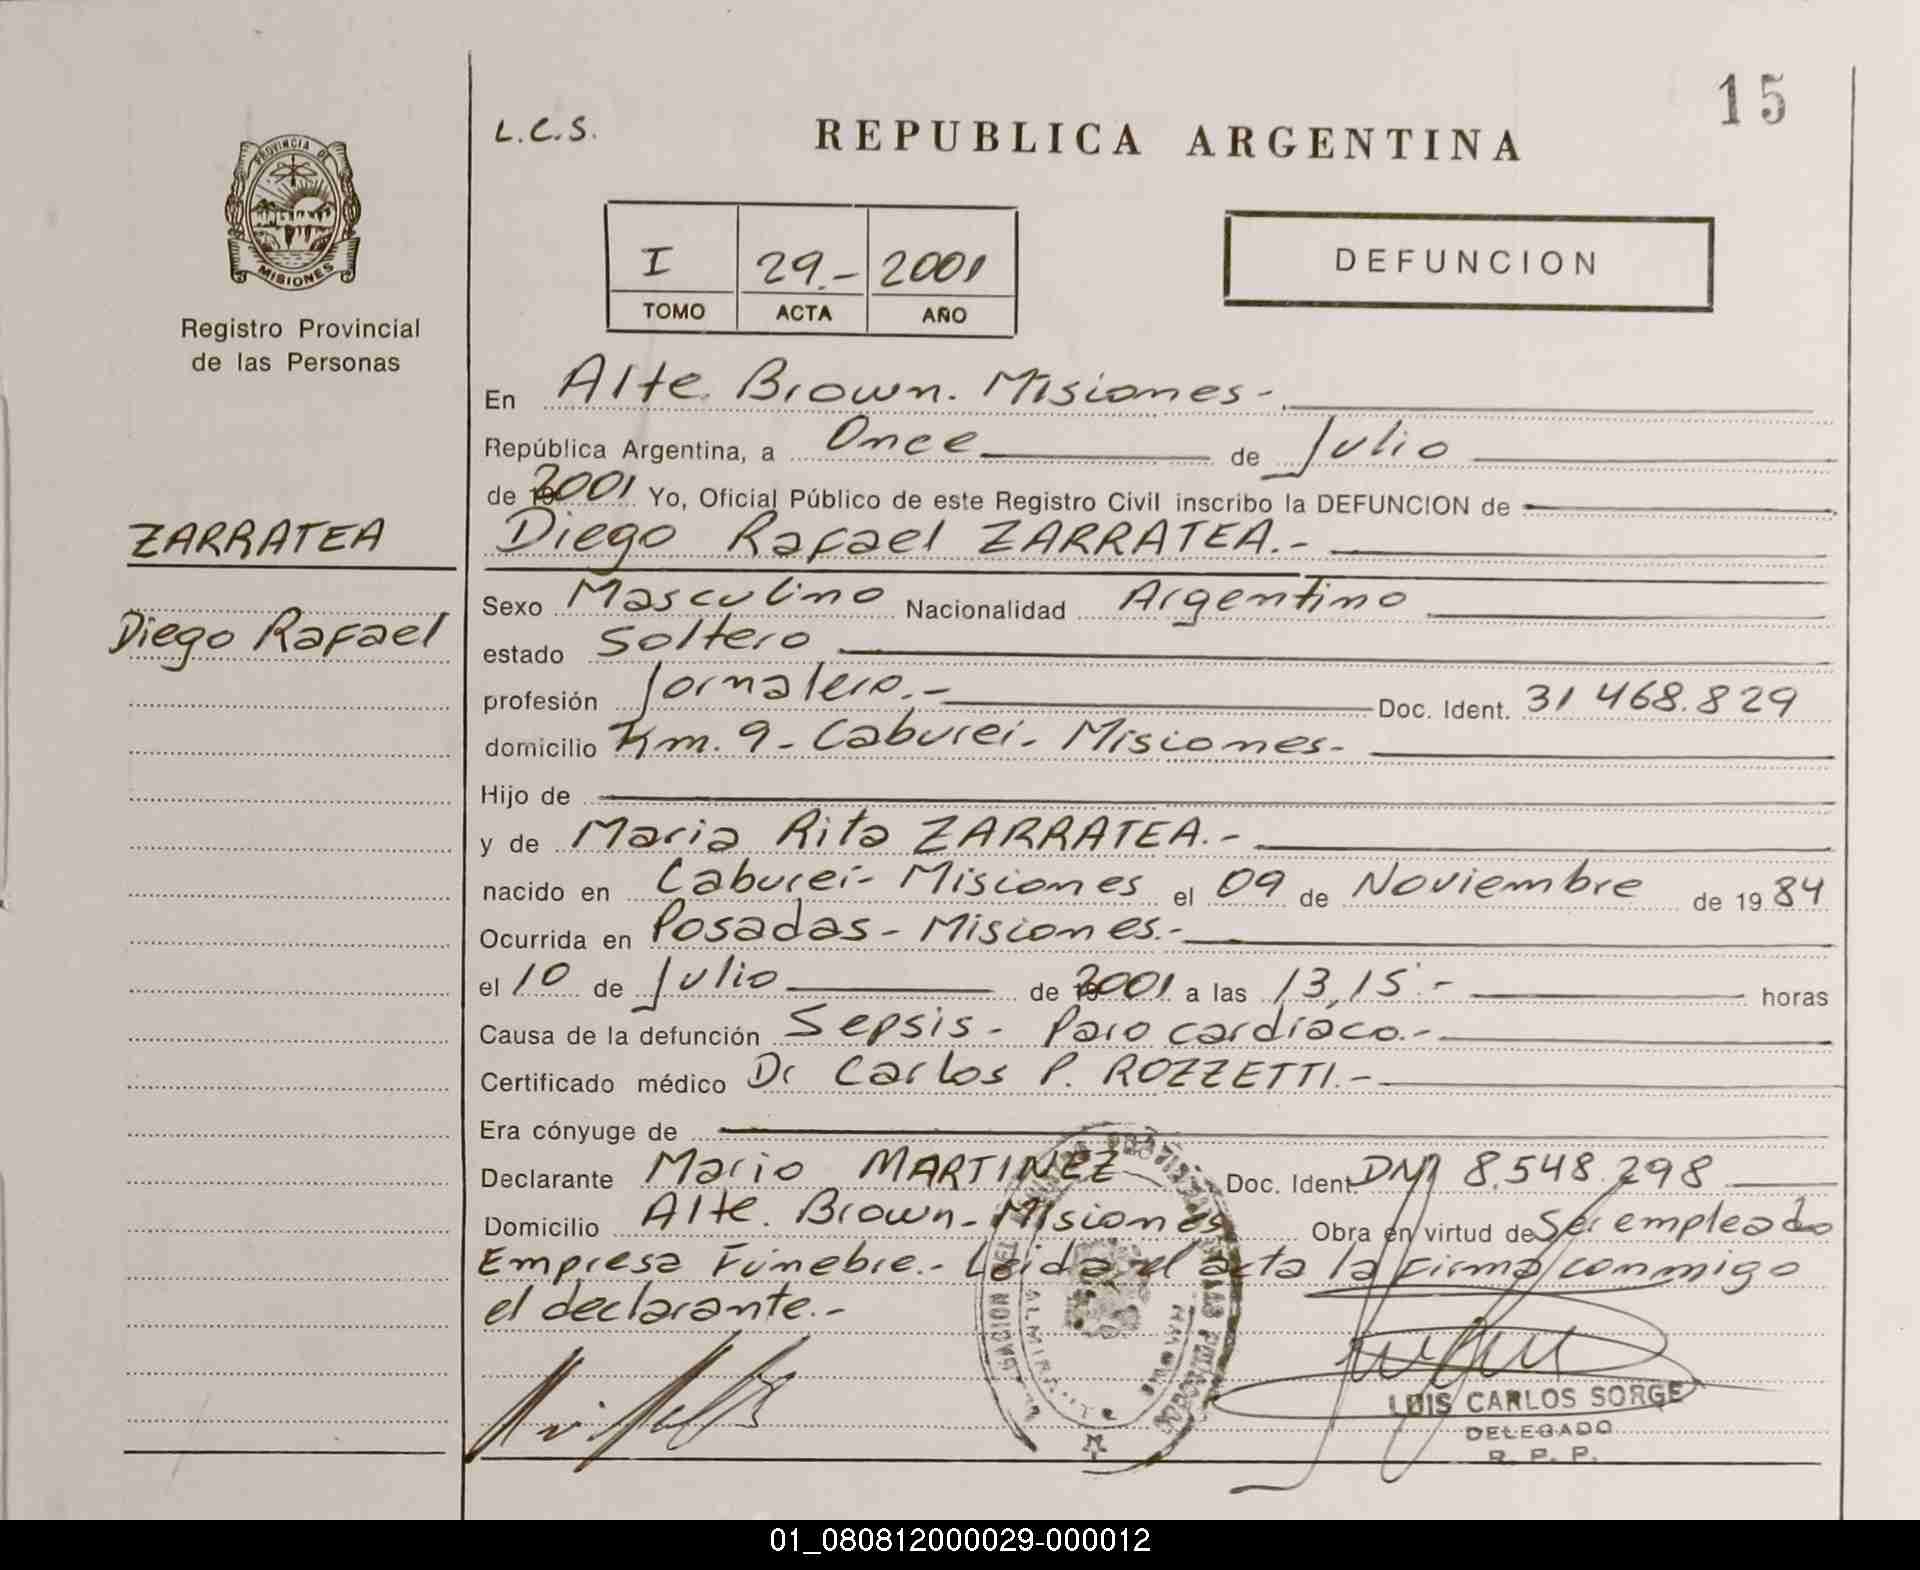 15
L.C.S.
REPUBLICA ARGENTINA
PROVINCIA DE
MISIONES
Registro Provincial
de las Personas
I 29.- 2001
TOMO ACTA AÑO
DEFUNCION
ZARRATEA
Diego Rafael
En Alte. Brown. Misiones-.
República Argentina, a Once de Julio
de 2001 Yo, Oficial Público de este Registro Civil inscribo la DEFUNCION de
Diego Rafael ZARRATEA.-
Sexo Masculino Nacionalidad Argentino
estado Soltero
profesión Jornalero.- Doc. Ident. 31 468.829
domicilio Km. 9- Cabureí- Misiones-
Hijo de
y de Maria Rita ZARRATEA.-
nacido en Cabureí- Misiones el 09 de Noviembre de 1984
Ocurrida en Posadas- Misiones.-
el 10 de Julio de 2001 a las 13,15.- horas
Causa de la defunción Sepsis- Paro cardíaco.-
Certificado médico Dr Carlos P. ROZZETTI.-
Era cónyuge de
Declarante Mario MARTINEZ Doc. Ident. DNI 8.548.298
Domicilio Alte. Brown- Misiones Obra en virtud de Ser empleado
Empresa Fúnebre.- Leida el acta la firma conmigo
el declarante.-
LUIS CARLOS SORGE
DELEGADO
R. P. P.
01_080812000029-000012